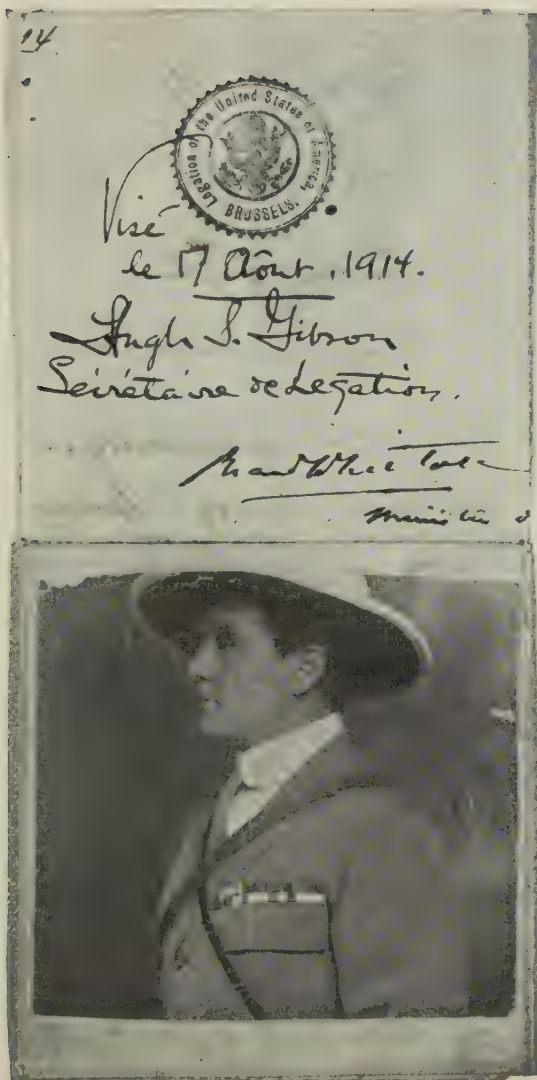 14
Legation of the United States of America,
BRUSSELS.
Visé
le 17 Août, 1914.
Hugh S. Gibson
Sécrétaire de Legation.
Brand Whitlock